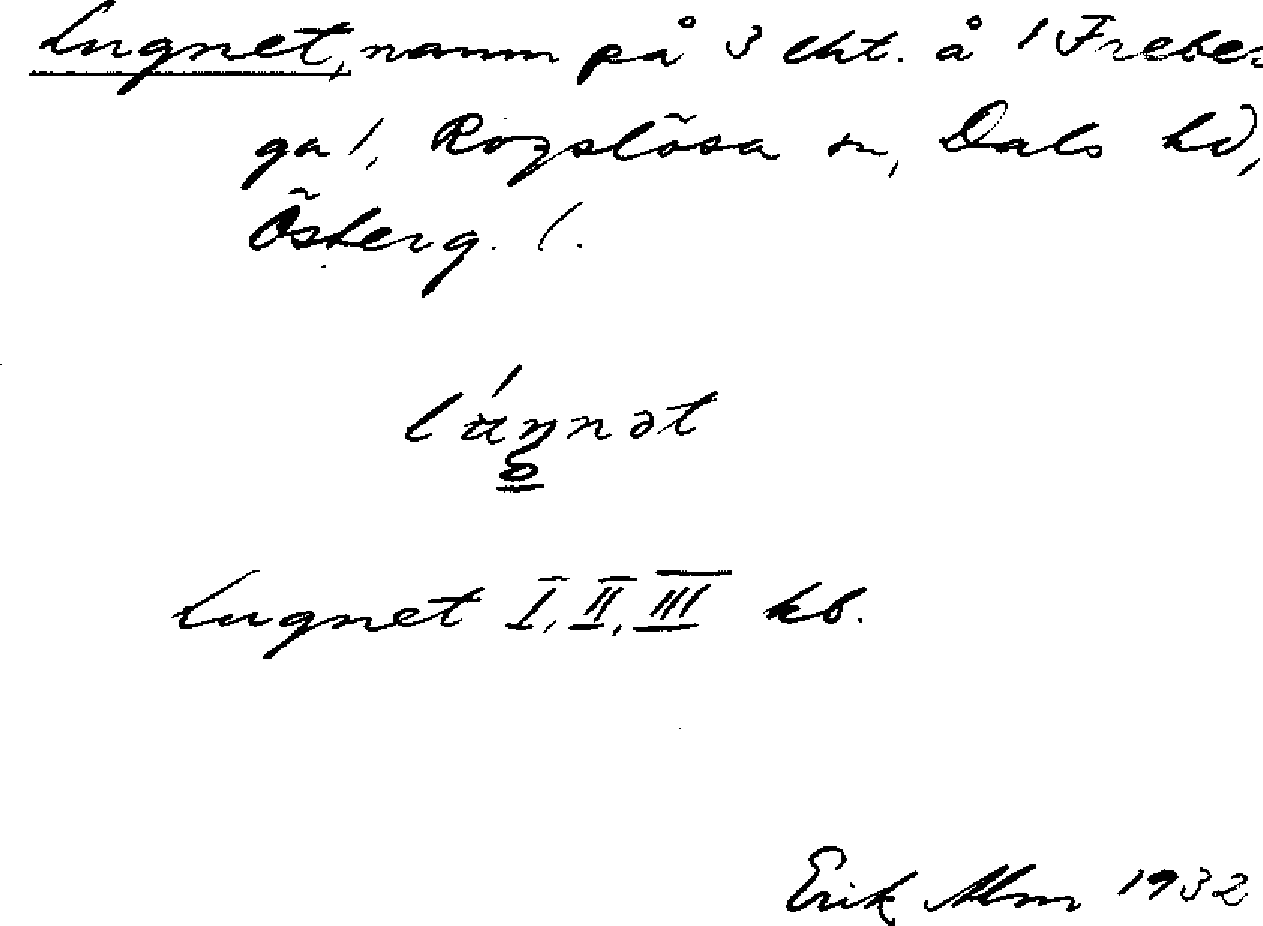 Lugnet, namn på 3 lht. å / Freber-
ga /, Rogslösa sn, Dals hd,
Österg. l.
lúŋnət
Lugnet I, II, III kb.
Erik Alm 1932